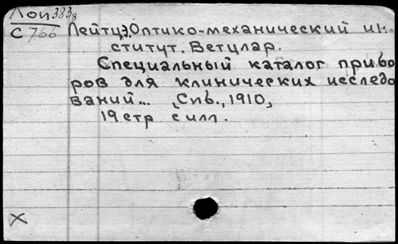 Лоп 383г
С 766 Лейтц, Оптико-механический ин-
ститут. Ветцлар.
Специальный каталог прибо
ров для клинических исследо
ваний... Спб., 1910,
19 стр с илл.
X